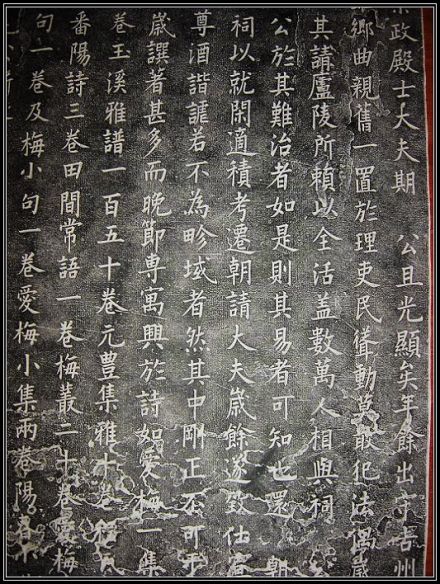 政殿士大夫期 公且光顯矣年餘出守吉州
鄉曲親舊一置於理吏民聳動莫敢犯法偶歲
其請廬陵所賴以全活蓋數萬人相與祠
公於其難治者如是則其易者可知也還 朝
祠以就閑適積考遷朝請大夫歲餘遂致仕
尊酒諧謔若不為畛域者然其中剛正不可干
歲譔著甚多而晚節專寓興於詩如愛梅一集
卷玉溪雅譜一百五十卷元豊集雅十卷
番陽詩三卷田間常語一卷梅叢二十卷愛梅
句一卷及梅小句一卷愛梅小集兩卷陽